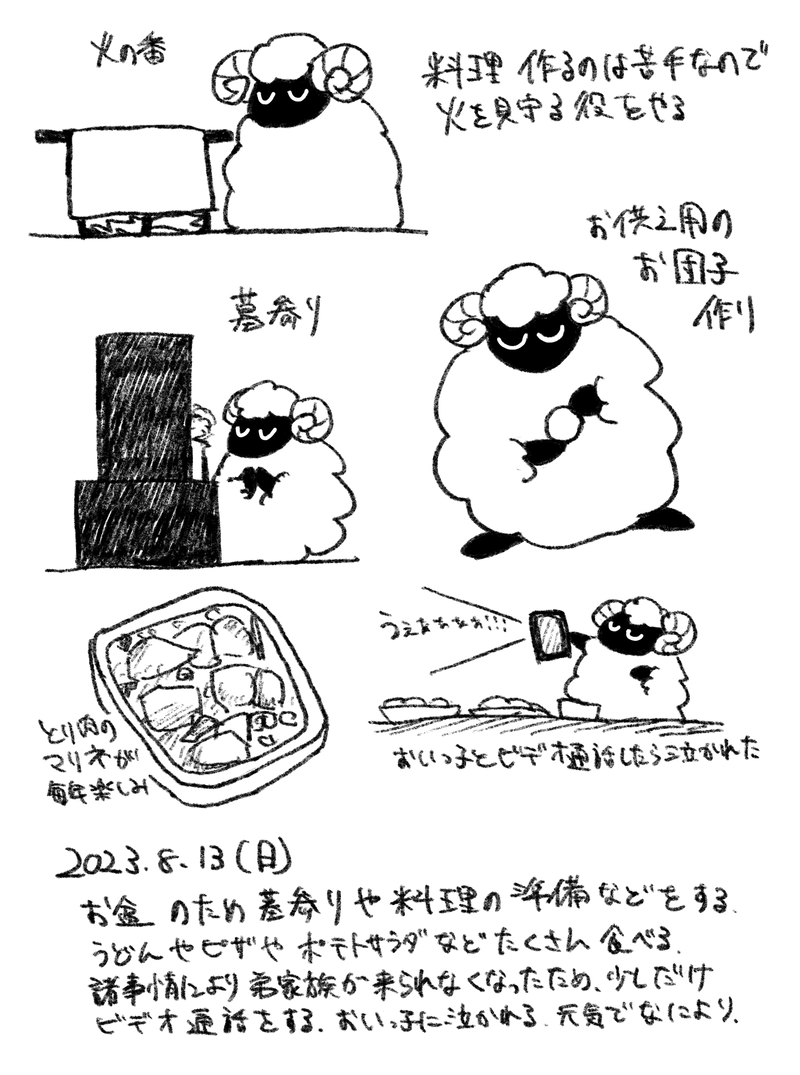 火の番
料理 作るのは苦手なので
火を見守る役をやる
お供え用の
お団子
作り
墓参り
うぇぁぁぁぁ!!!
とり肉の
マリネが
毎年楽しみ
おいっ子とビデオ通話したら泣かれた
2023.8.13(日)
お盆のため墓参りや料理の準備などをする.
うどんやピザやポテトサラダなどたくさん食べる.
諸事情により弟家族が来られなくなったため、少しだけ
ビデオ通話をする.おいっ子に泣かれる.元気でなにより.